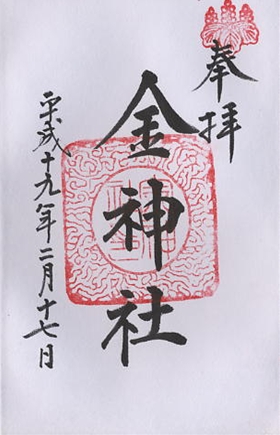 奉拝
金神社
平成十九年二月十七日